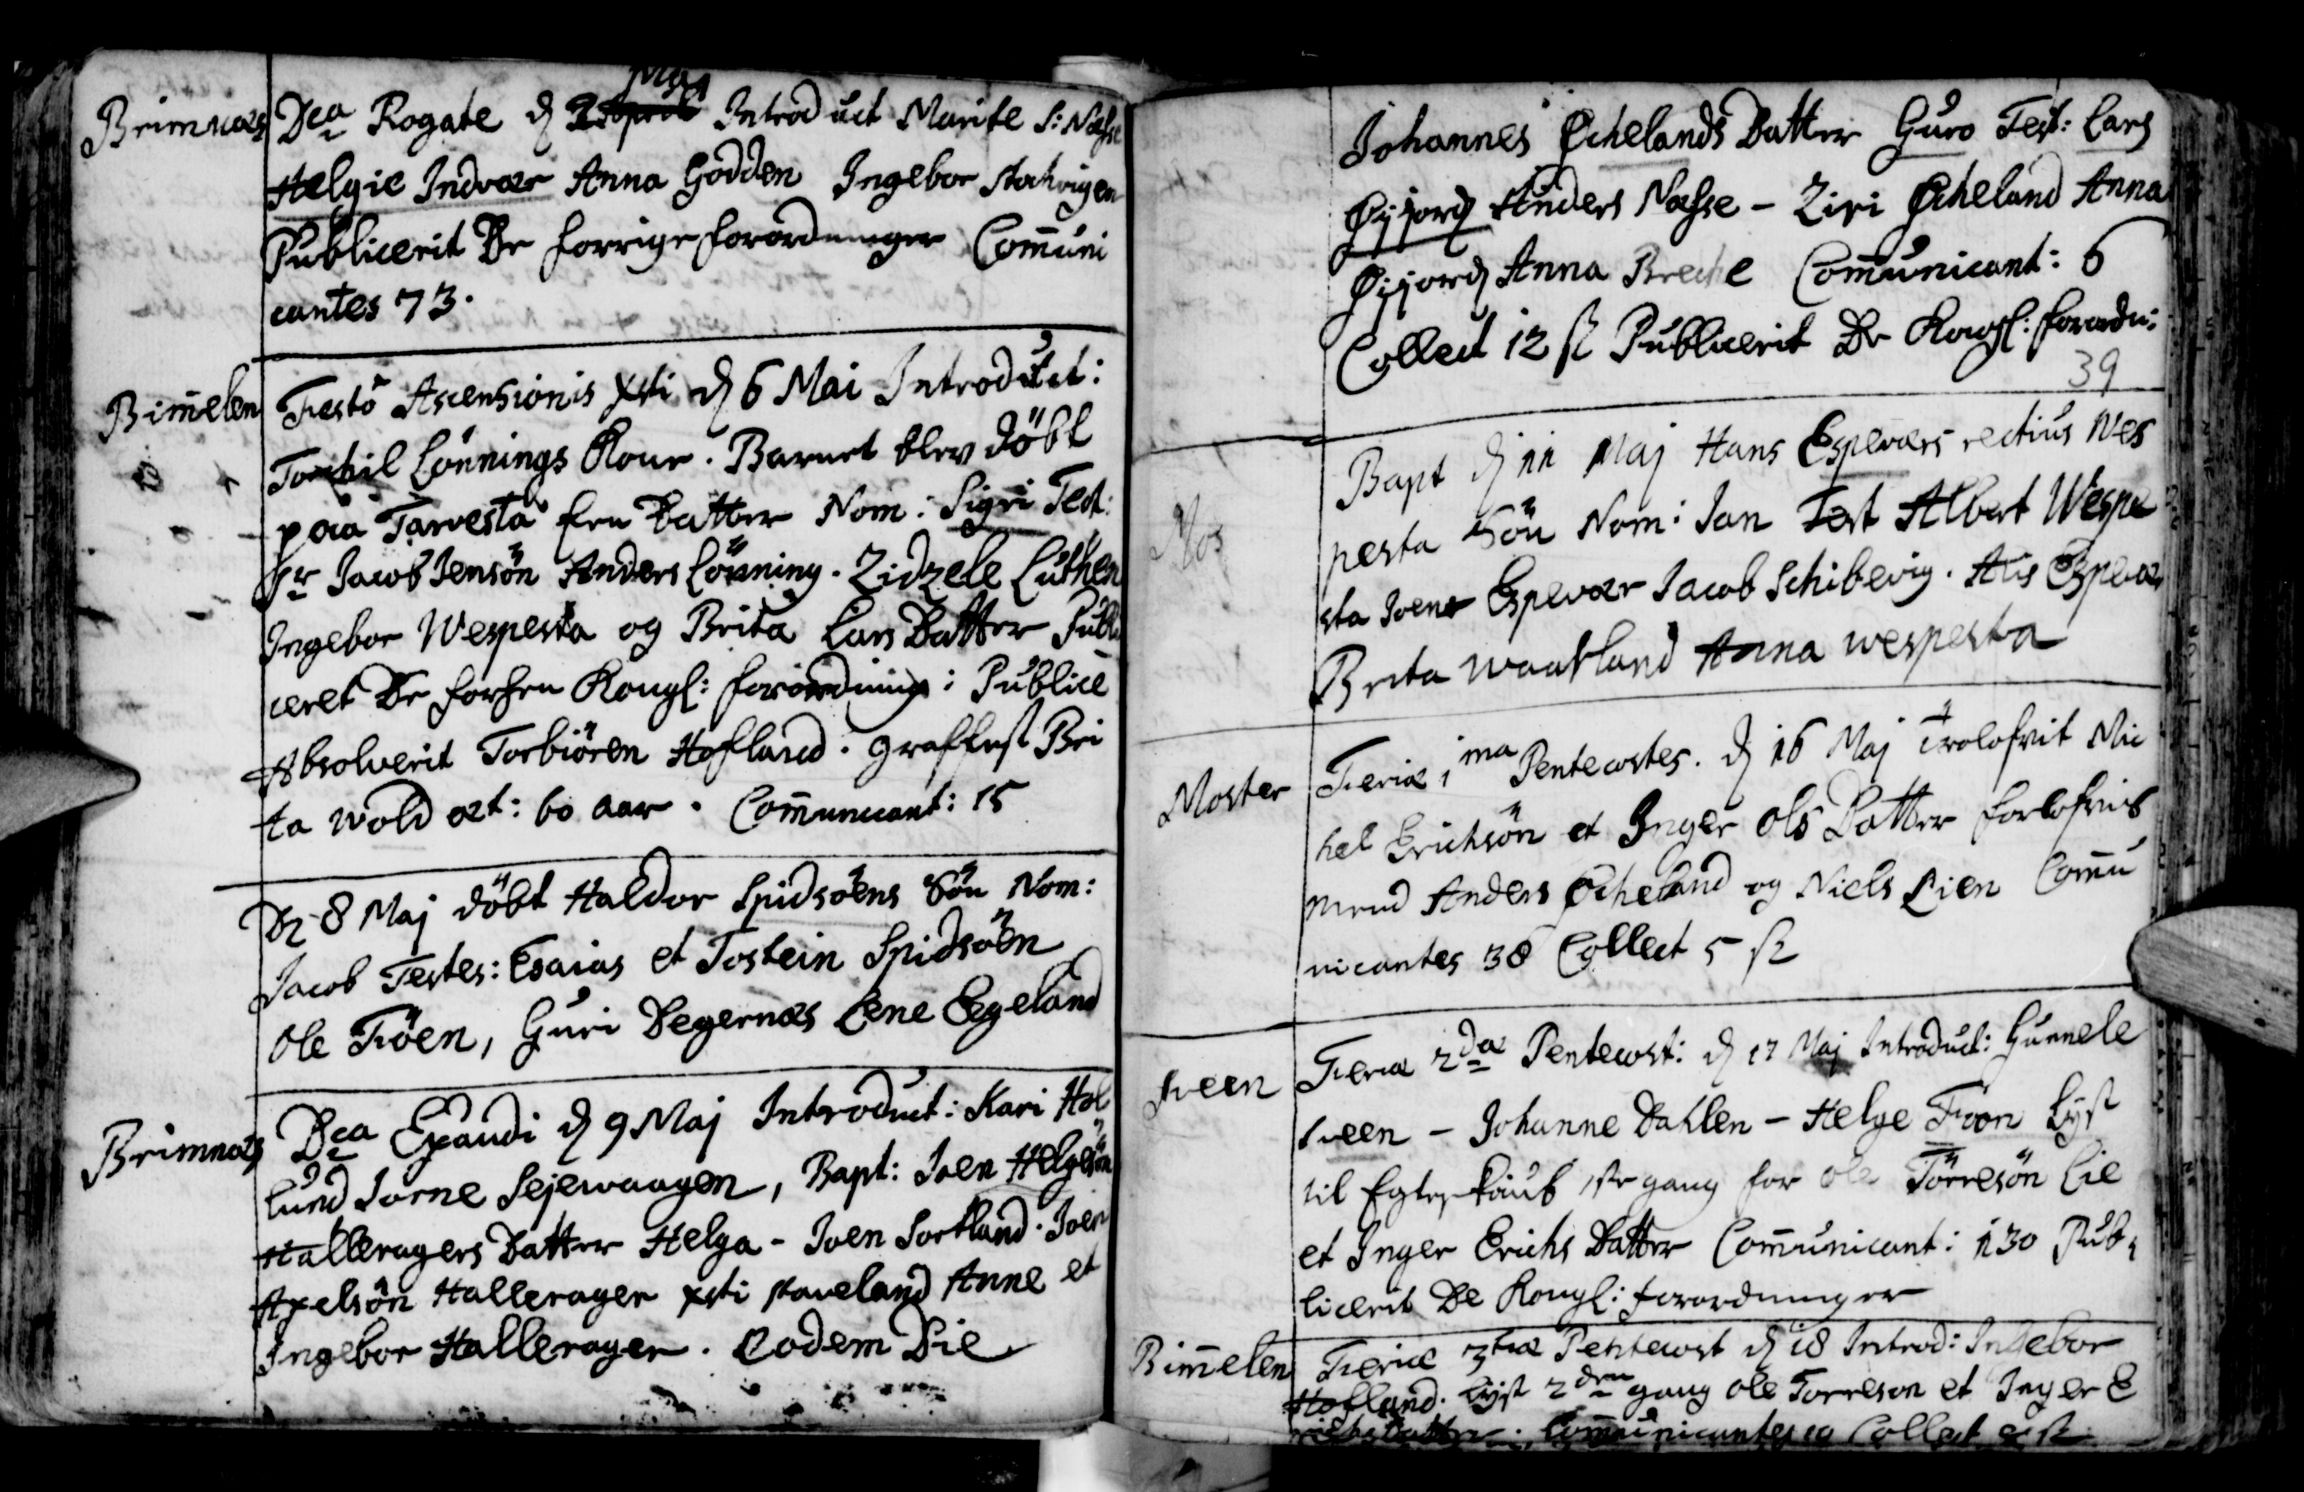 Brimnæs Dca Rogate d 2 Maj Introduct Marite S: Næsse
Helgie Indvær Anna Godden Ingebor Stochvigen
Publicerit De forrige forordninger Com̄uni
cantes 73.
Bim̄elen Festo Ascensionis Xsti d 6 Mai Introduct:
Torchil Lönnings Kone. Barnet blev döbt
paa Tarvesta En Datter Nom: Sigri Test:
Hr Jacob Jensön Anders Lönning. Zidzele
Ingebor Wespesta og Brita Lars Datter Publi
ceret De Kongl: forordning: Publice
Absolverit Torbiören Hofland. Bri
ta Wold æt: 60 aar. Com̄unicant: 15
D 8 Maj döbt Haldor Spidsöens Sön Nom:
Jacob Testes: Esaias et Tostein Spidsöen
Ole Fröen, Guri Degernæs Lene Egeland
Brimnæs Dca Exaudi d 9 Maj Introduct: Kari Hol
lund Jorne Sejewaagen, Bapt: Joen Helgesön
Halleragers Datter Helga - Joen Sortland. Joen
Axelsön Halleragen Xsti Staveland Anne et
Ingebor Halleragen. Eodem Die
Johannes Öchelands Datter Guro Test: Lars
Øyjord Anders Næsse - Ziri Öcheland Anna
Øyjord Anna Breche Com̄unicant: 6
Collect 12 ß Publicerit De Kongl: forordn:
39
Bapt d 11 Maj Hans Espeværs rectius Wes
Mos pesta Sön Nom: Jan Test Albert Wespe
sta Joen Espevær Jacob Schibevig. Espevær
Brita Waatland Anna Wespesta
Moster Feriæ 1ma Pentecostes. d 16 Maj Trolofvit Mic
hel Erichsön et Inger Ols Datter forlofvis
mend Anders Öcheland og Niels Lien Com̄u
nicantes 38 Collect 5 ß
Sveen Feriæ 2dæ Pentecost: d 17 Maj Introduct: Gunnele
Sveen - Johanne Dahlen - Helge Lyst
til Egteskaub 1ste gang for Ole Törresön Lie
et Inger Erichs Datter Com̄unicant: 130 Pub
licerit De Kongl: forordninger
Bim̄elen Feriæ 3tiæ Pentecost d 18 Introd: Ingebor
Hofland. Lyst 2den gang Ole Torreson et Inger E
richs Datter. Com̄unicantes 10 Collect